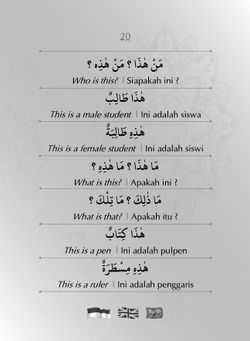 20
مَنْ هٰذَا ؟ مَنْ هٰذِهِ ؟
Who is this? | Siapakah ini ?
هٰذَا طَالِبٌ
This is a male student | Ini adalah siswa
هٰذِهِ طَالِبَةٌ
This is a female student | Ini adalah siswi
مَا هٰذَا ؟ مَا هٰذِهِ ؟
What is this? | Apakah ini ?
مَا ذٰلِكَ ؟ مَا تِلْكَ ؟
What is that? | Apakah itu ?
هٰذَا كِتَابٌ
This is a pen | Ini adalah pulpen
هٰذِهِ مِسْطَرَةٌ
This is a ruler | Ini adalah penggaris